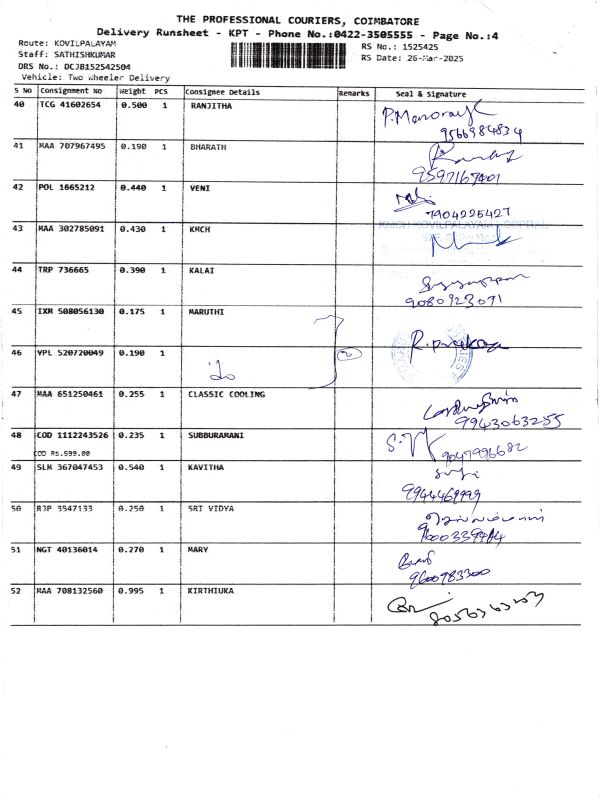 THE PROFESSIONAL COURIERS, COIMBATORE
Delivery Runsheet - KPT - Phone No.:0422-3505555 - Page No.:4
Route: KOVILPALAYAM
RS No.: 1525425
Staff: SATHISHKUMAR
RS Date: 26-Mar-2025
DRS No.: DCJB152542504
Vehicle: Two Wheeler Delivery
S No Consignment No Weight PCS Consignee Details Remarks Seal & Signature
40 TCG 41602654 0.500 1 RANJITHA
9566984834
41 MAA 707967495 0.190 1 BHARATH
9597167401
42 POL 1665212 0.440 1 VENI
7904225427
43 MAA 302785091 0.430 1 KMCH
44 TRP 736665 0.390 1 KALAI
9080923071
45 IXM 508056130 0.175 1 MARUTHI
46 VPL 520720049 0.190 1
2
47 MAA 651250461 0.255 1 CLASSIC COOLING
9943063255
48 COD 1112243526 0.235 1 SUBBURAMANI
COD Rs.599.00
9047996682
49 SLM 367047453 0.540 1 KAVITHA
9944469999
50 RJP 3547133 0.250 1 SRI VIDYA
51 NGT 40136014 0.270 1 MARY
9600983300
52 MAA 708132560 0.995 1 KIRTHIUKA